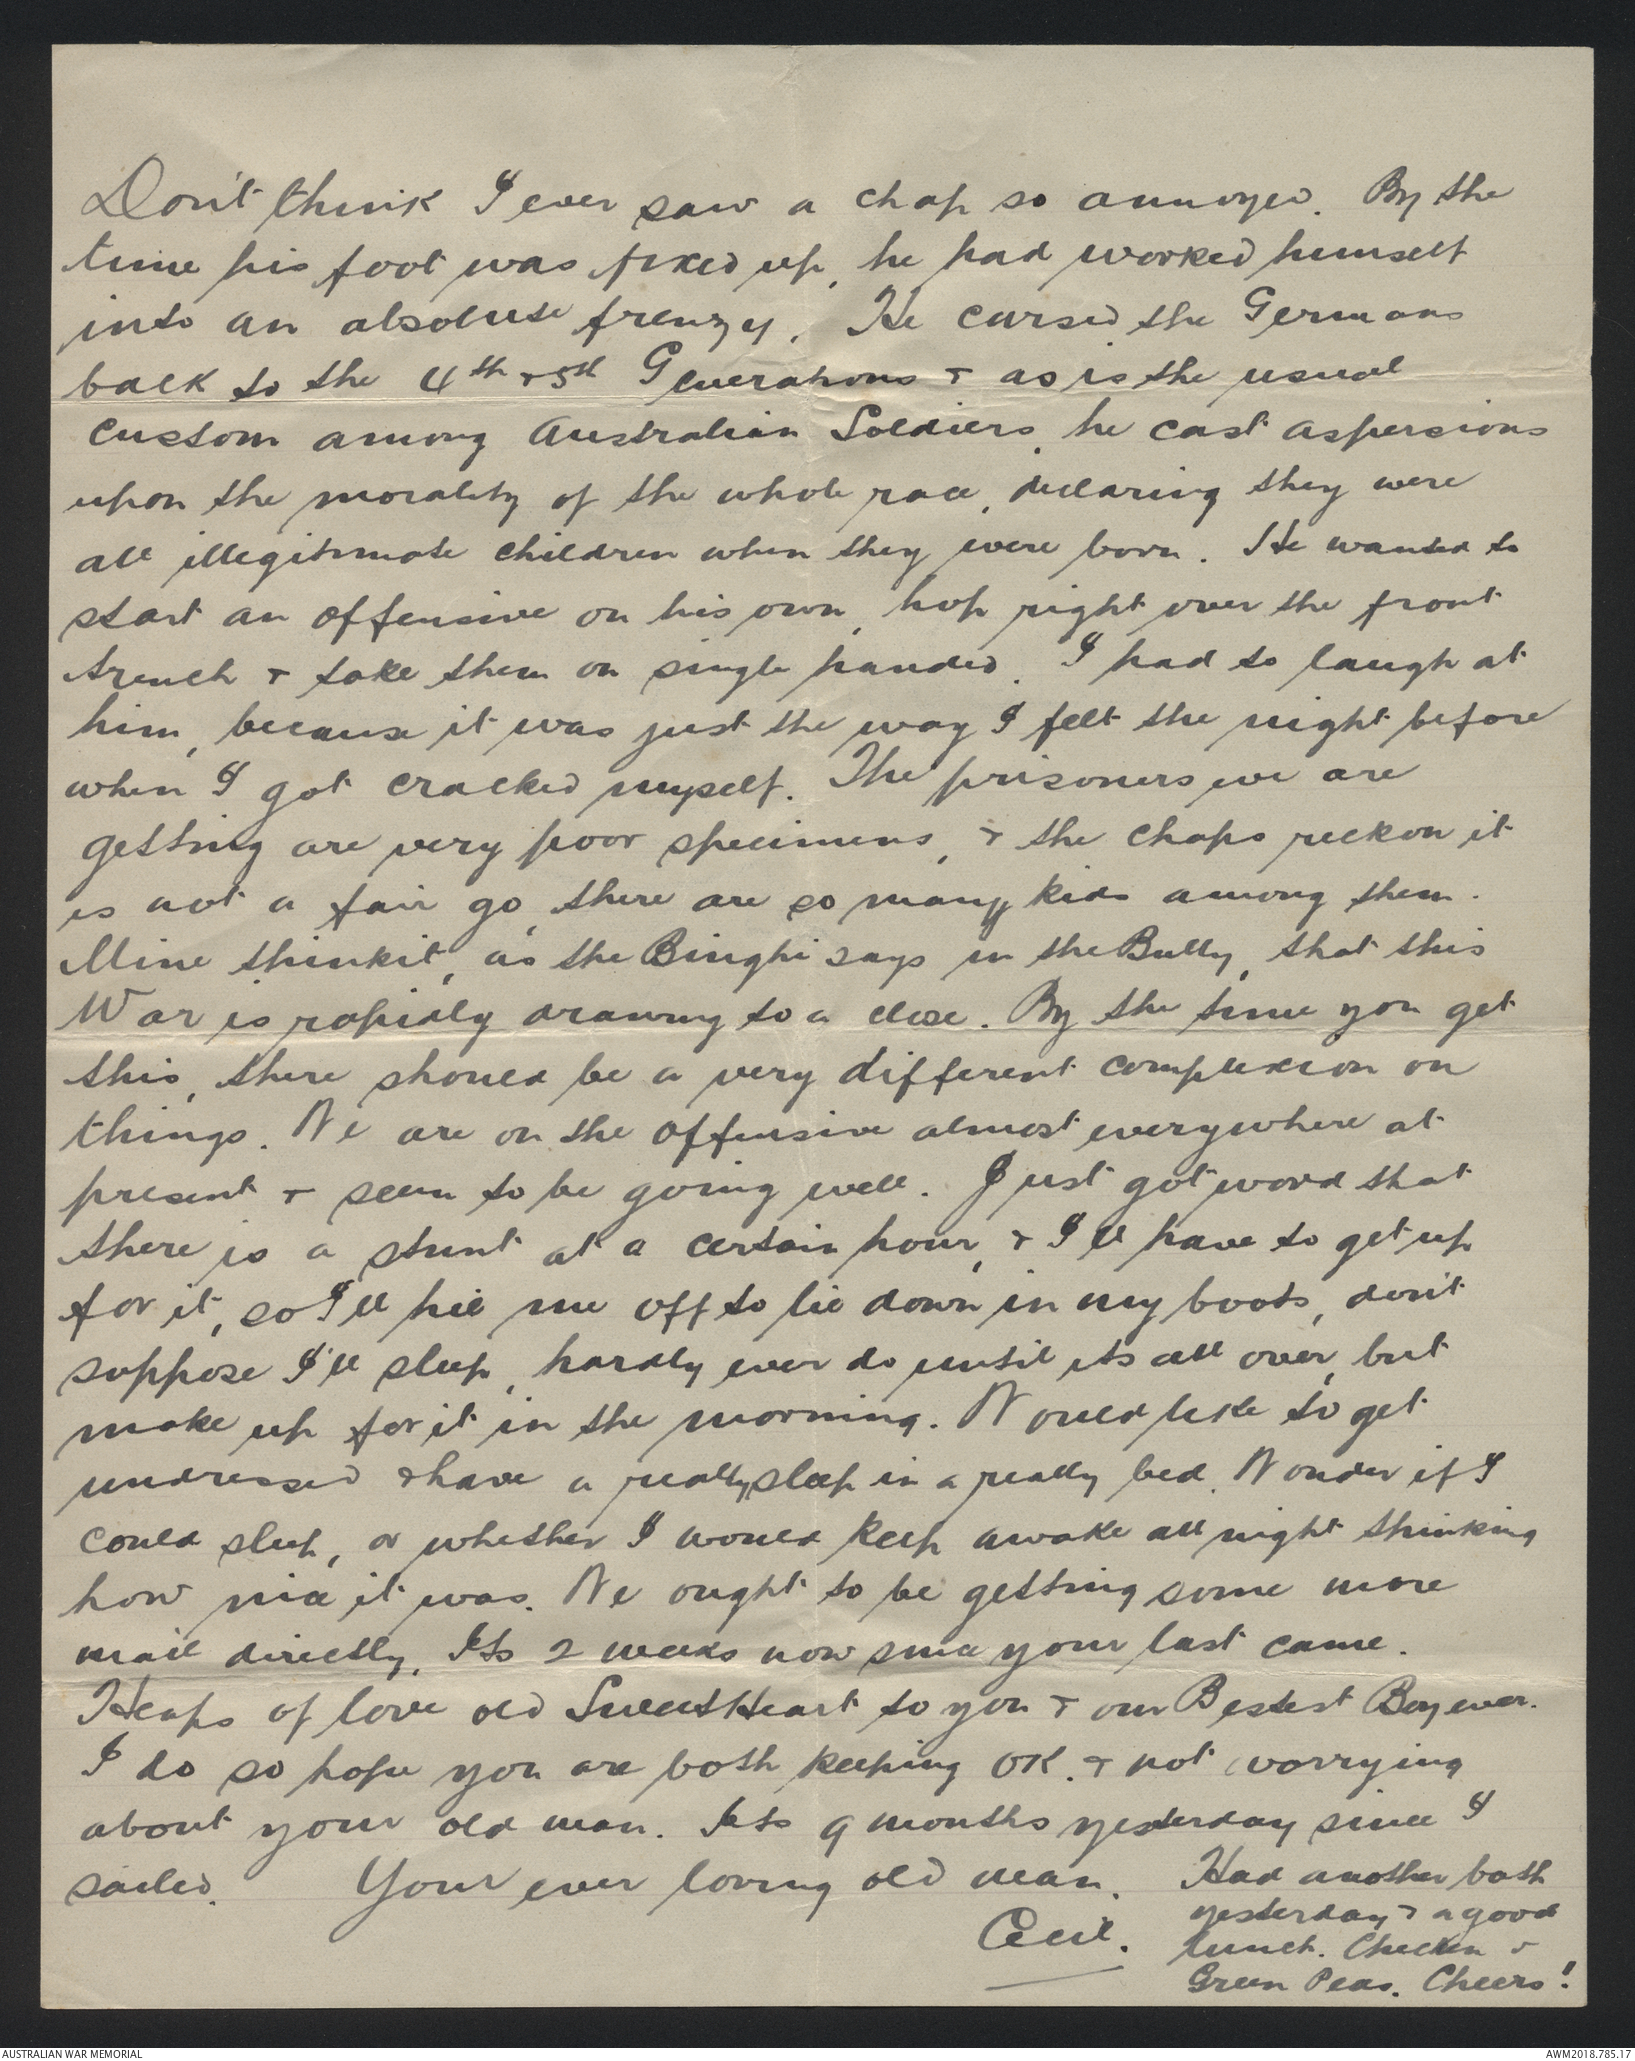 Don't think I ever saw a chap so annoyed. By the
time his foot was fixed up, he had worked himself
into an absolute frenzy. He cursed the Germans
back to the 4th & 5th Generations & as is the usual
custom among Australian Soldiers, he cast aspersions
upon the morality of the whole race, declaring they were
all illegitimate children when they were born. He wanted to
start an offensive on his own, hop right over the front
trench & take them on single handed. I had to laugh at
him, because it was just the way I felt the night before
when I got cracked myself. The prisoners we are
getting are very poor specimens, & the chaps reckon it
is not a fair go, there are so many kids among them.
Mine thinkit, as the Binghi says in the Bully, that this
War is rapidly drawing to a close. By the time you get
this, there should be a very different complexion on
things. We are on the offensive almost everywhere at
present & seem to be going well. Just got word that
there is a stunt at a certain hour, & I'll have to get up
for it, so I'll hie me off to lie down in my boots, don't
suppose I'll sleep, hardly ever do until its all over, but
make up for it in the morning. Would like to get
undressed & have a really sleep in a really bed. Wonder if I
could sleep, or whether I would keep awake all night thinking
how nice it was. We ought to be getting some more
mail directly. Its 2 weeks now since your last came.
Heaps of love old SweetHeart to you & our Bestest Boy ever.
I do so hope you are both keeping OK. & not worrying
about your old man. Its 9 months yesterday since I
sailed. Your ever loving old man.
Cecil.
Had another bath
yesterday & a good
lunch. Chicken &
Green Peas. Cheers!
AUSTRALIAN WAR MEMORIAL
AWM2018.785.17